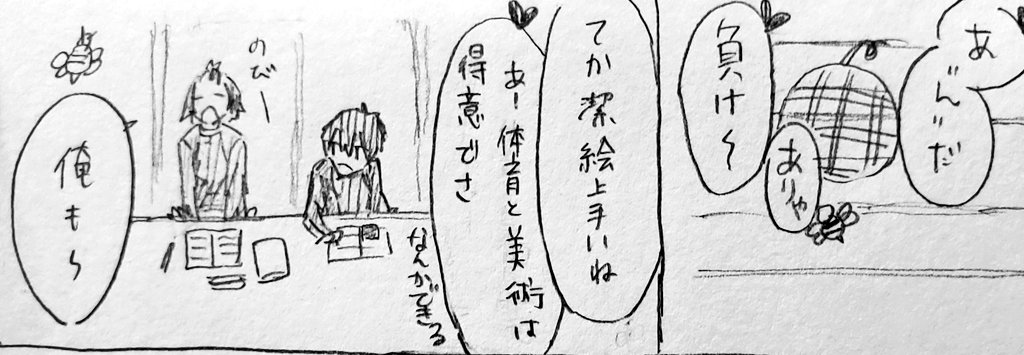 あ
"ん"だ
ありゃ
負け〜
てか潔絵上手いね
あー体育と美術は
得意でさ
なんかできる
のびー
俺も〜